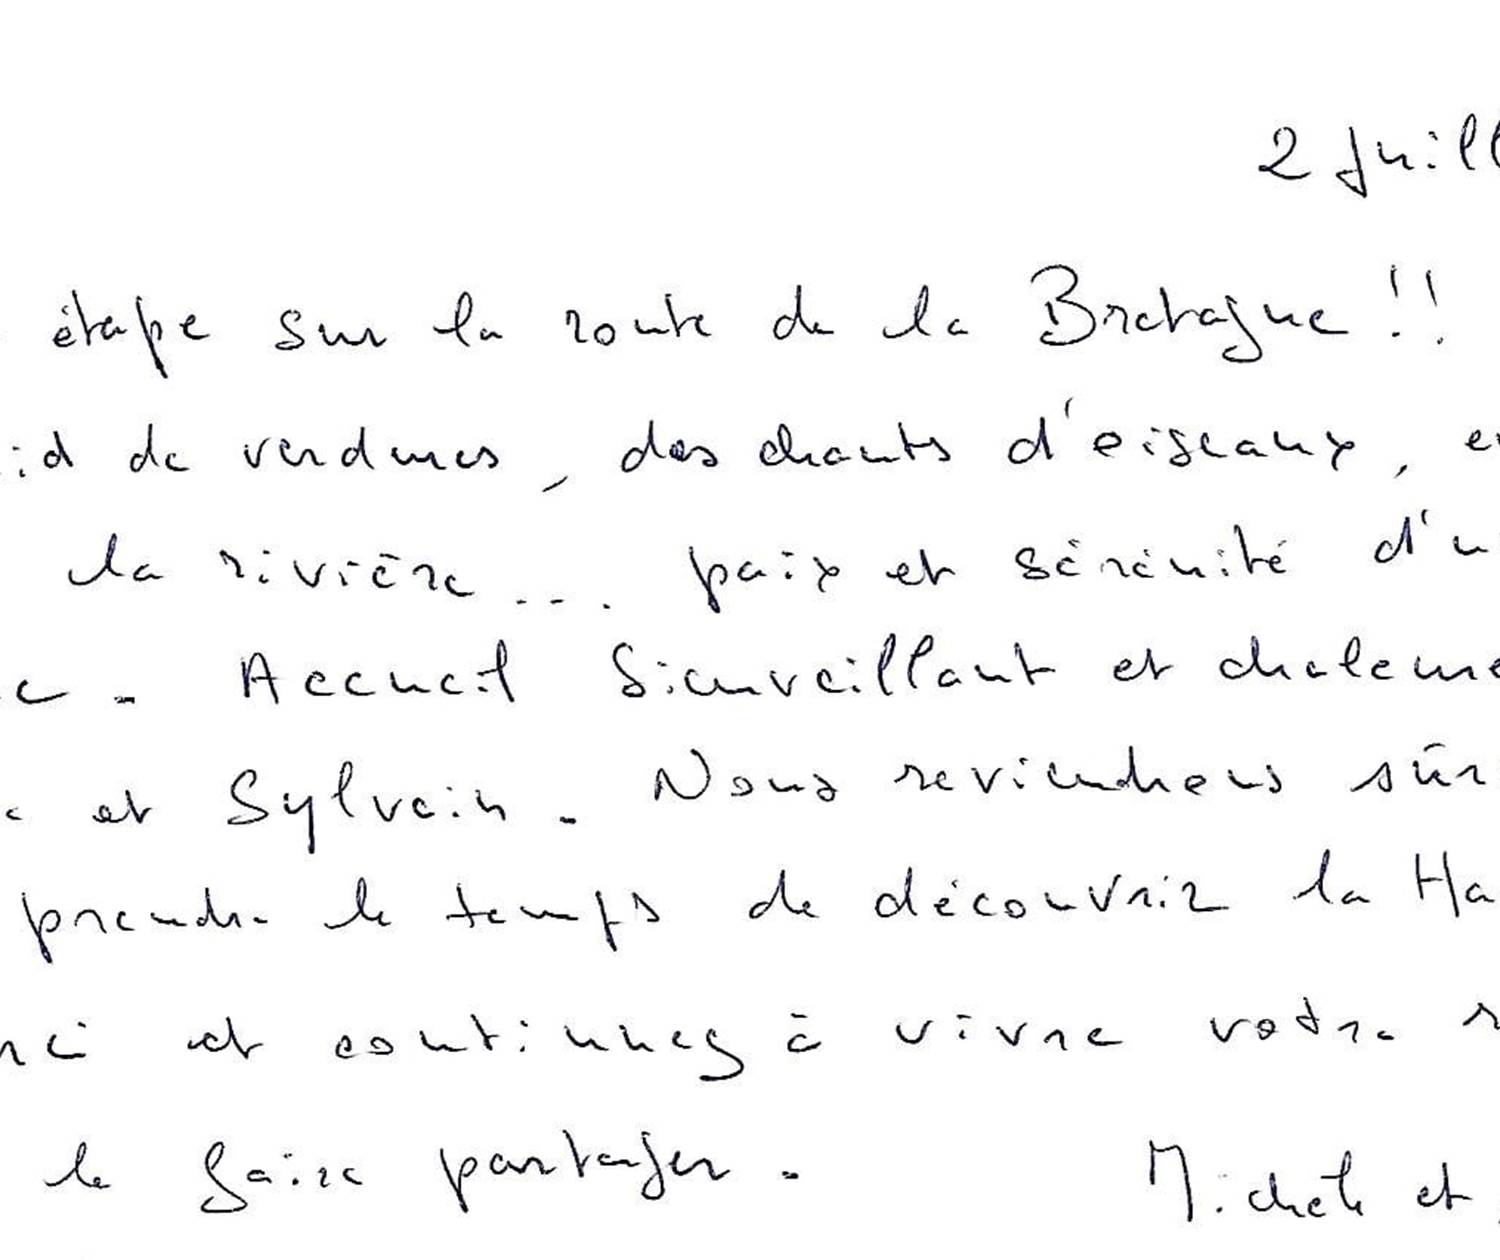 2 Juill
étape sur la route de la Bretagne !!
id de verdures, des chants d'oiseaux, e
la rivière ... paix et sérénité d'u
e. Accueil bienveillant et chaleure
et Sylvain. Nous reviendrons sûr
prendre le temps de découvrir la Ha
rci et continuez à vivre votre r
le faire partager.
Michèle et